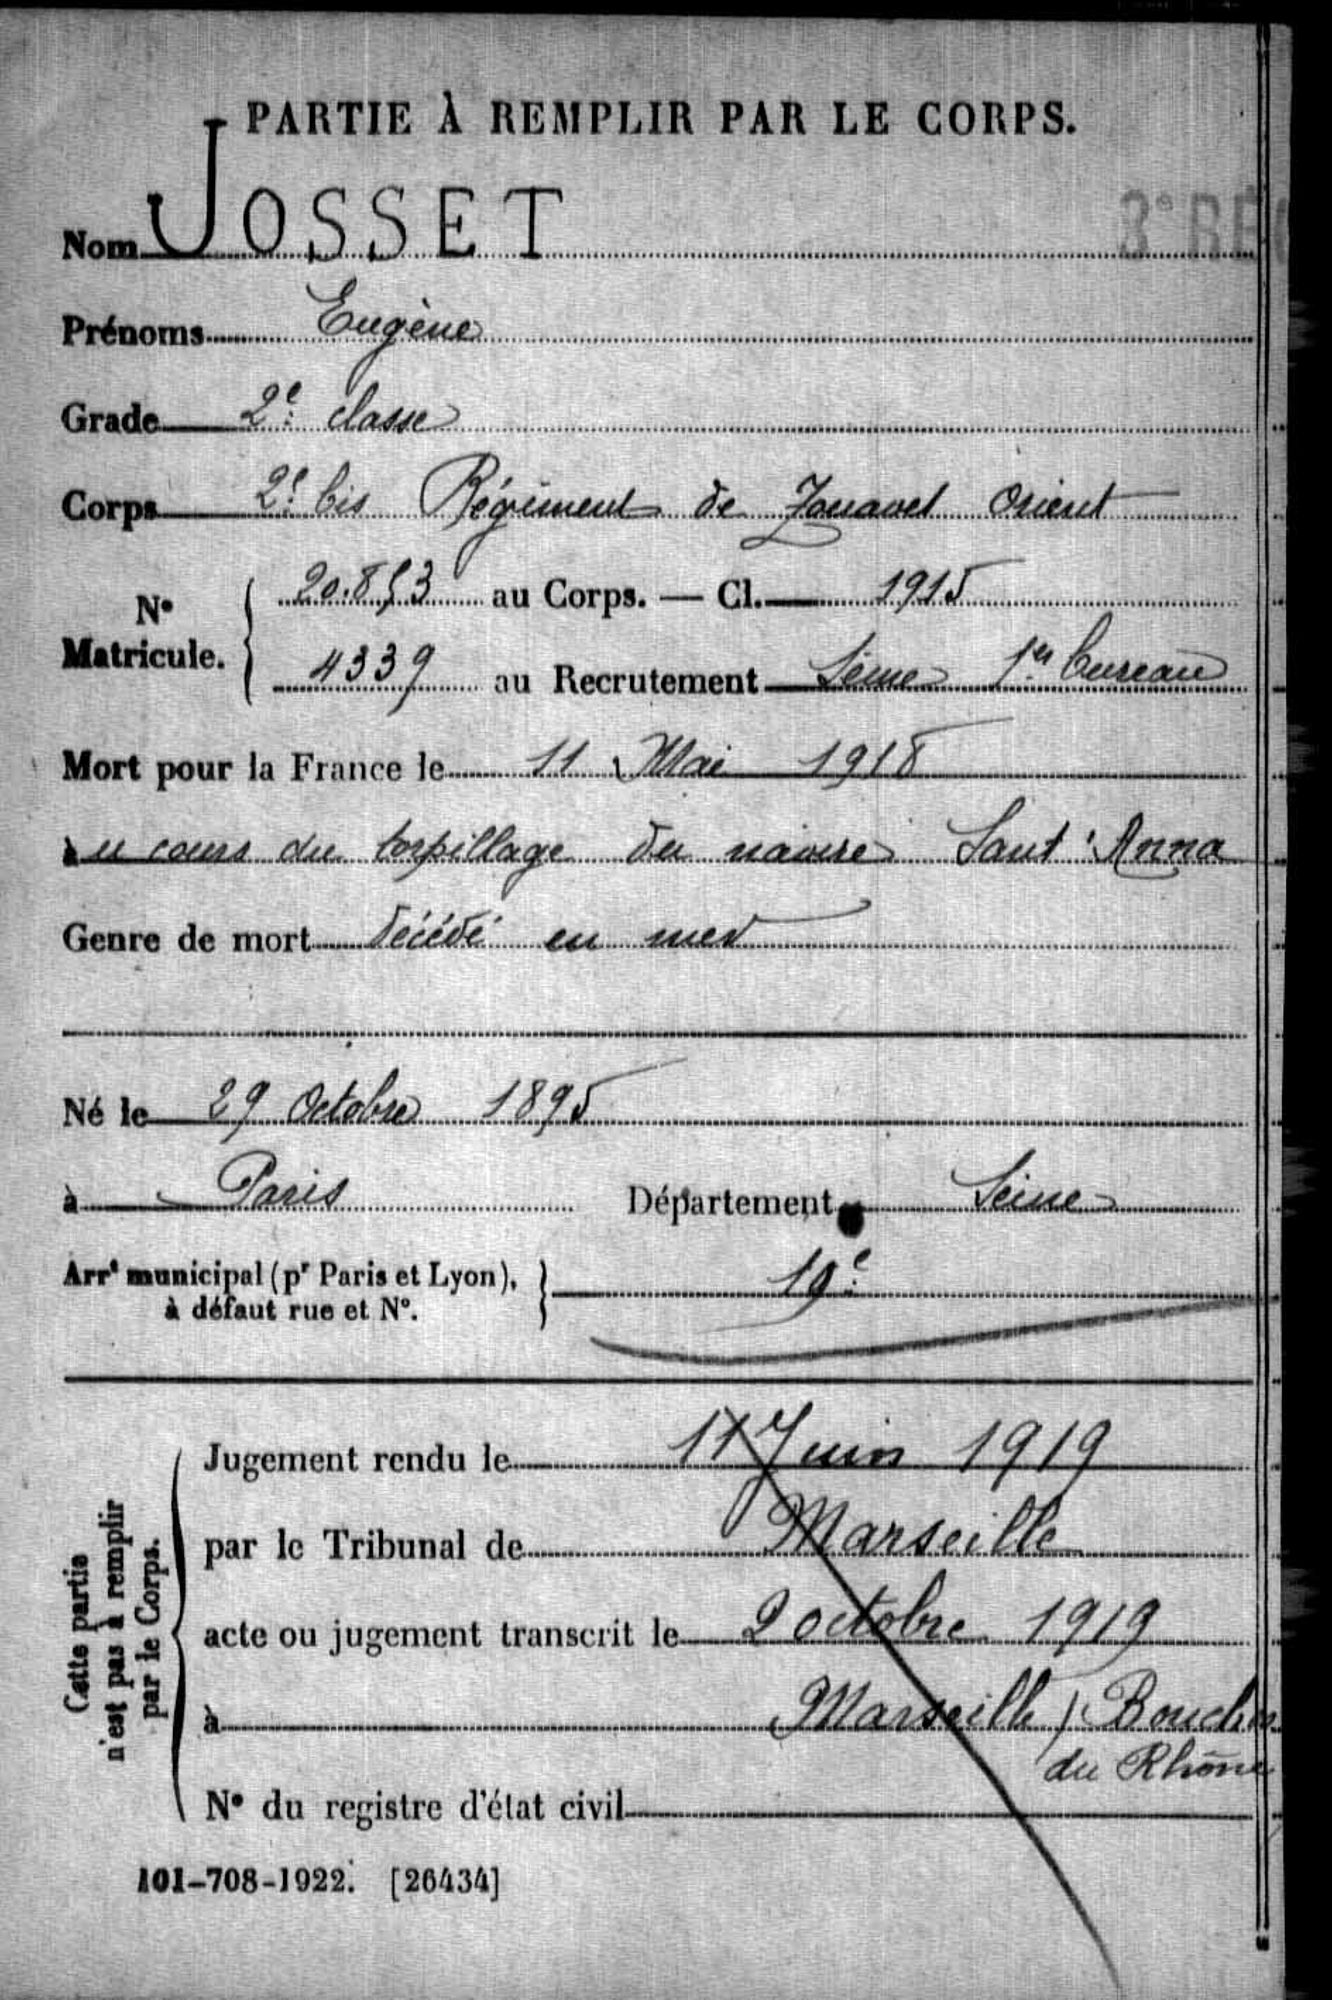 PARTIE À REMPLIR PAR LE CORPS.
3e RÉG
Nom JOSSET
Prénoms Eugène
Grade 2e classe
Corps 2e bis Régiment de Zouaves Orient
No Matricule. { 20.853 au Corps. — Cl. 1915
4339 au Recrutement Seine 1er bureau
Mort pour la France le 11 Mai 1918
au cours du torpillage du navire Sant'Anna
Genre de mort décédé en mer
Né le 29 Octobre 1895
à Paris Département Seine
Arrt municipal (pr Paris et Lyon), } 19e
à défaut rue et No.
Cette partie n'est pas à remplir par le Corps.
Jugement rendu le 11 Juin 1919
par le Tribunal de Marseille
acte ou jugement transcrit le 2 octobre 1919
à Marseille / Bouches
du Rhône
No du registre d'état civil
101-708-1922. [26434]